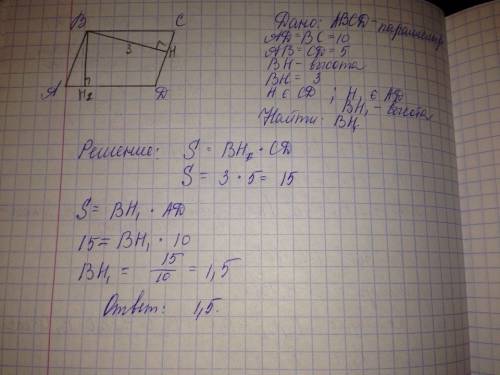 B
C
3
H
A
H₁
D
Дано: ABCD - параллелогр
AD = BC = 10
AB = CD = 5
BH - высота
BH = 3
H ∈ CD ; H₁ ∈ AD
BH₁ - высота
Найти: BH₁
Решение: S = BH · CD
S = 3 · 5 = 15
S = BH₁ · AD
15 = BH₁ · 10
BH₁ = 15/10 = 1,5
Ответ: 1,5.